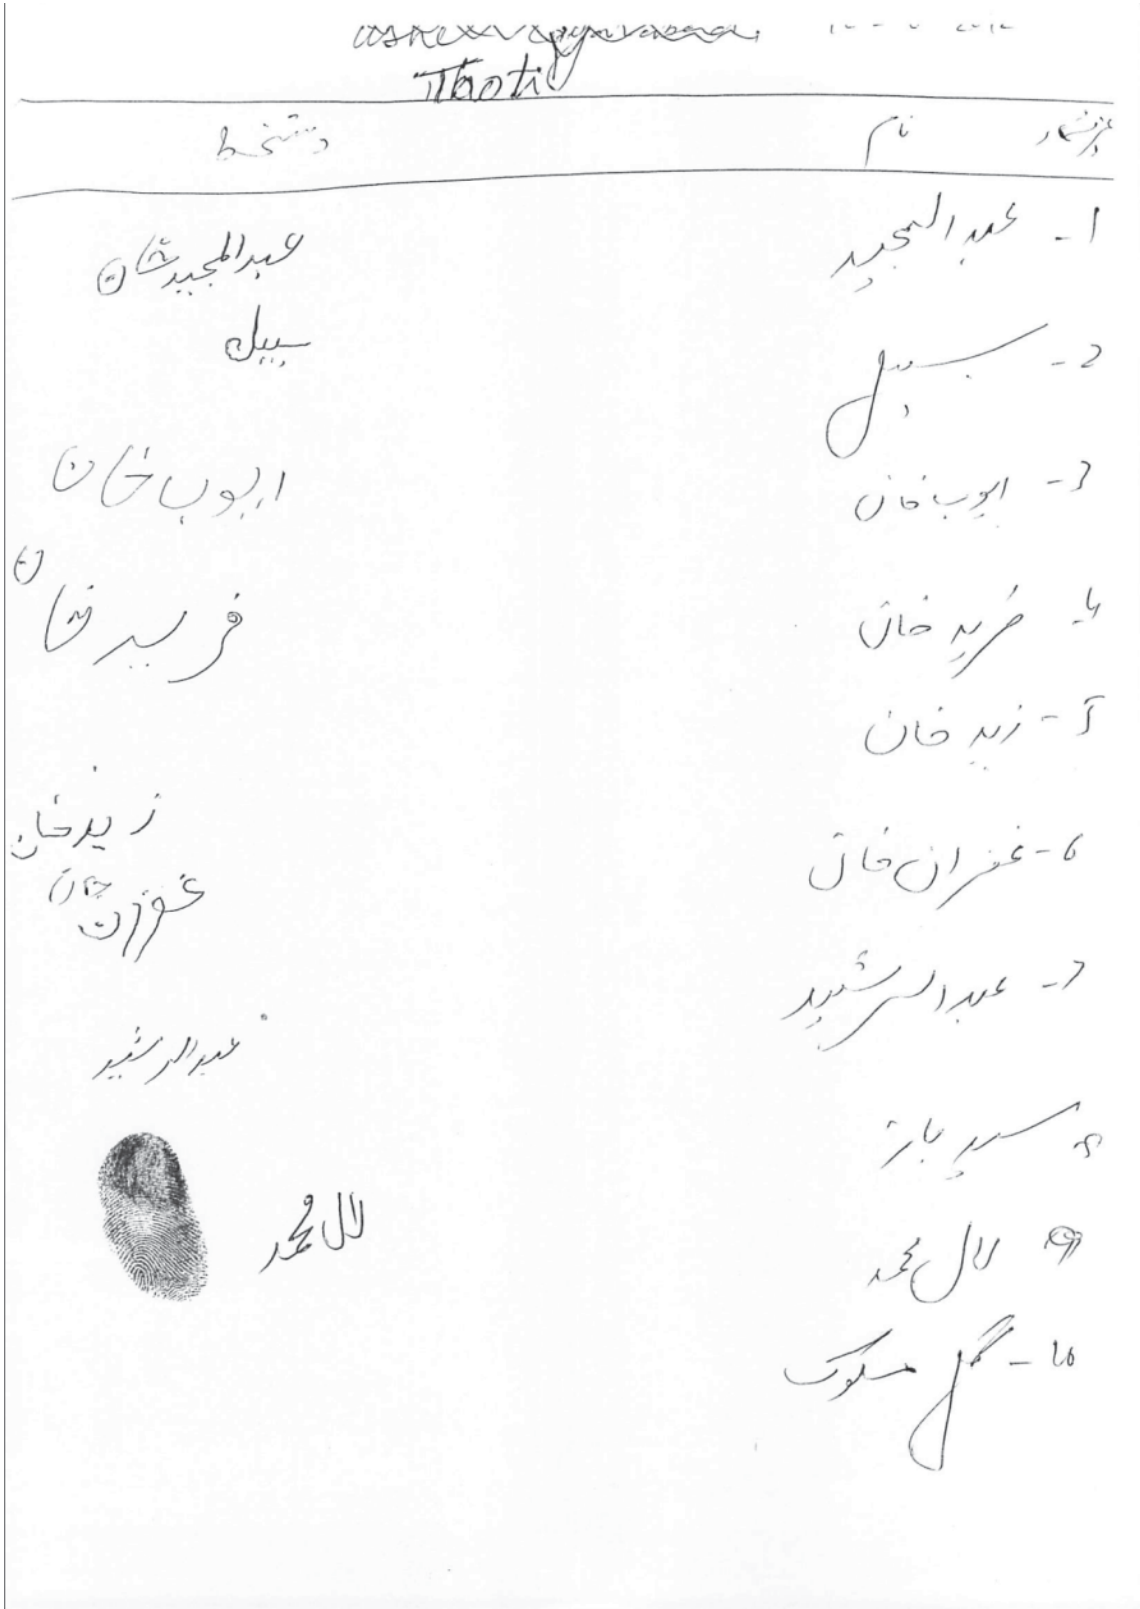 Thoti
نام دستخط
1- عبدالمجید عبدالمجید خان
2- سبیل سبیل
3- ایوب خان ایوب خان
4- فرید خان فرید خان
5- زید خان زید خان
6- غفران خان غفران خان
7- عبدالرشید عبدالرشید
8 سید باز
9 لال محمد لال محمد
10- گل